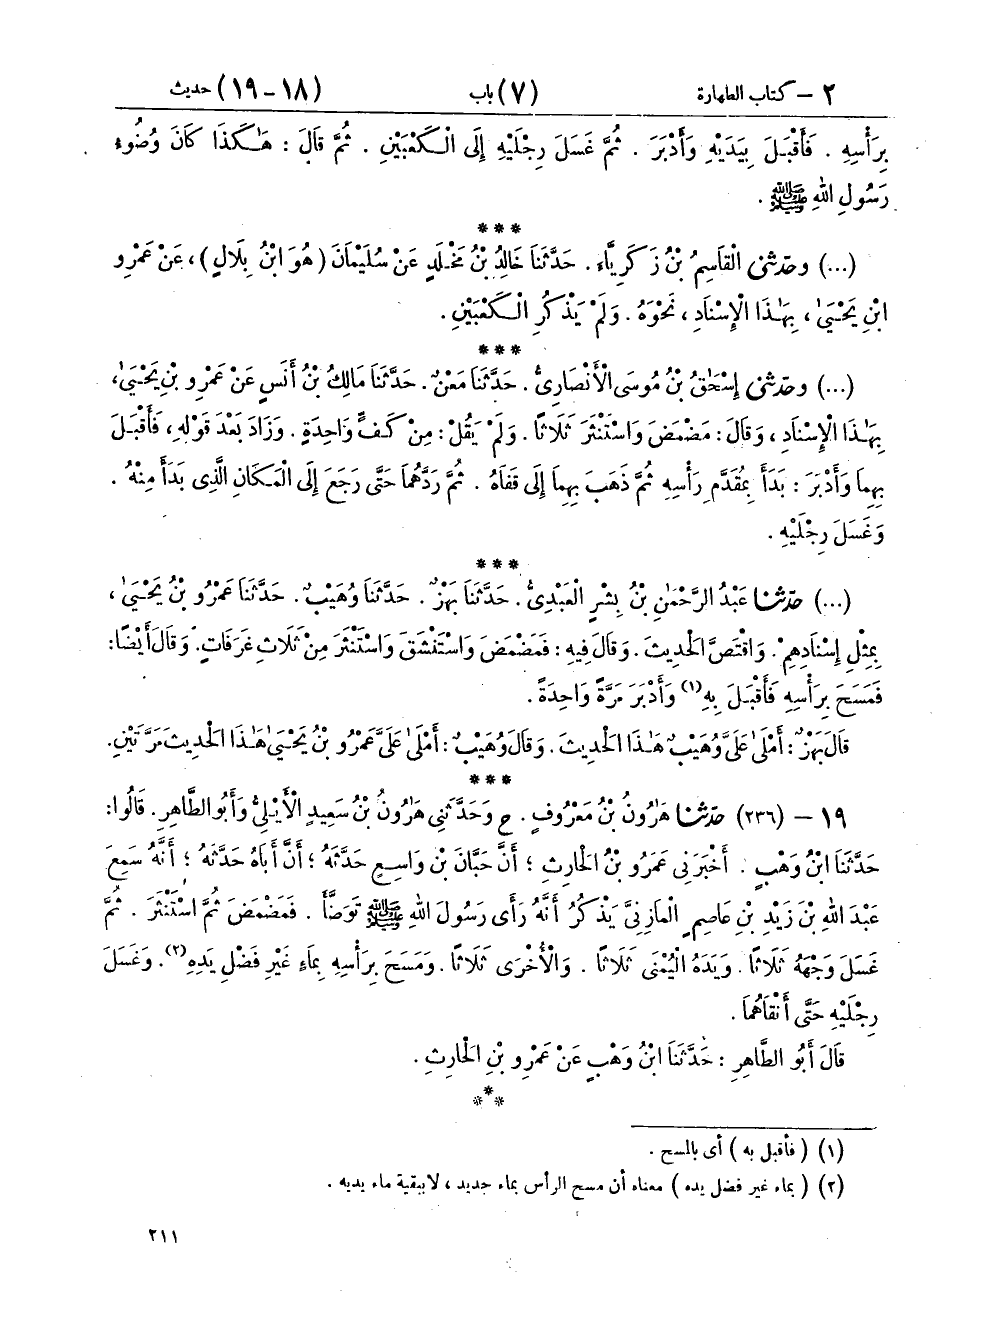 ٢ – كتاب الطهارة (٧) باب (١٨ – ١٩) حديث
بِرَأْسِهِ . فَأَقْبَلَ بِيَدَيْهِ وَأَدْبَرَ . ثُمَّ غَسَلَ رِجْلَيْهِ إِلَى الْكَعْبَيْنِ . ثُمَّ قَالَ : هَـٰكَذَا كَانَ وُضُوءُ
رَسُولِ اللهِ ﷺ .
***
(...) وحَدَّثَنِى الْقَاسِمُ بْنُ زَكَرِيَّاء . حَدَّثَنَا خَالِدُ بْنُ مَخْلَدٍ عَنْ سُلَيْمَانَ ( هُوَ ابْنُ بِلَالٍ ) ، عَنْ عَمْرِو
ابْنِ يَحْيَىٰ ، بِهَـٰذَا الْإِسْنَادِ ، نَحْوَهُ . وَلَمْ يَذْكُرِ الْـكَعْبَيْنِ .
***
(...) وحَدَّثَنِى إِسْحَٰقُ بْنُ مُوسَى الْأَنْصَارِىُّ . حَدَّثَنَا مَعْنٌ . حَدَّثَنَا مَالِكُ بْنُ أَنَسٍ عَنْ عَمْرِو بْنِ يَحْيَىٰ ،
بِهَـٰذَا الْإِسْنَادِ ، وَقَالَ : مَضْمَضَ وَاسْتَنْثَرَ ثَلَاثًا . وَلَمْ يَقُلْ : مِنْ كَفٍّ وَاحِدَةٍ . وَزَادَ بَعْدَ قَوْلِهِ ، فَأَقْبَلَ
بِهِمَا وَأَدْبَرَ : بَدَأَ بِمُقَدَّمِ رَأْسِهِ ثُمَّ ذَهَبَ بِهِمَا إِلَى قَفَاهُ . ثُمَّ رَدَّهُمَا حَتَّى رَجَعَ إِلَى الْمَكَانِ الَّذِى بَدَأَ مِنْهُ .
وَغَسَلَ رِجْلَيْهِ .
***
(...) حَدَّثَنَا عَبْدُ الرَّحْمَٰنِ بْنُ بِشْرٍ الْعَبْدِىُّ . حَدَّثَنَا بَهْزٌ . حَدَّثَنَا وُهَيْبٌ . حَدَّثَنَا عَمْرُو بْنُ يَحْيَىٰ ،
بِمِثْلِ إِسْنَادِهِمْ . وَاقْتَصَّ الْحَدِيثَ . وَقَالَ فِيهِ : فَمَضْمَضَ وَاسْتَنْشَقَ وَاسْتَنْثَرَ مِنْ ثَلَاثِ غَرَفَاتٍ . وَقَالَ أَيْضًا :
فَمَسَحَ بِرَأْسِهِ فَأَقْبَلَ بِهِ (١) وَأَدْبَرَ مَرَّةً وَاحِدَةً .
قَالَ بَهْزٌ : أَمْلَىٰ عَلَىَّ وُهَيْبٌ هَـٰذَا الْحَدِيثَ . وَقَالَ وُهَيْبٌ : أَمْلَىٰ عَلَىَّ عَمْرُو بْنُ يَحْيَىٰ هَـٰذَا الْحَدِيثَ مَرَّتَيْنِ .
***
١٩ – (٢٣٦) حَدَّثَنَا هَٰرُونُ بْنُ مَعْرُوفٍ . ح وَحَدَّثَنِى هَٰرُونُ بْنُ سَعِيدٍ الْأَيْلِىُّ وَأَبُو الطَّاهِرِ . قَالُوا :
حَدَّثَنَا ابْنُ وَهْبٍ . أَخْبَرَنِى عَمْرُو بْنُ الْحَارِثِ ؛ أَنَّ حَبَّانَ بْنَ وَاسِعٍ حَدَّثَهُ ؛ أَنَّ أَبَاهُ حَدَّثَهُ ؛ أَنَّهُ سَمِعَ
عَبْدَ اللهِ بْنَ زَيْدِ بْنِ عَاصِمٍ الْمَازِنِىَّ يَذْكُرُ أَنَّهُ رَأَى رَسُولَ اللهِ ﷺ تَوَضَّأَ . فَمَضْمَضَ ثُمَّ اسْتَنْثَرَ . ثُمَّ
غَسَلَ وَجْهَهُ ثَلَاثًا . وَيَدَهُ الْيُمْنَى ثَلَاثًا . وَالْأُخْرَى ثَلَاثًا . وَمَسَحَ بِرَأْسِهِ بِمَاءٍ غَيْرِ فَضْلِ يَدِهِ (٢) . وَغَسَلَ
رِجْلَيْهِ حَتَّى أَنْقَاهُمَا .
قَالَ أَبُو الطَّاهِرِ : حَدَّثَنَا ابْنُ وَهْبٍ عَنْ عَمْرِو بْنِ الْحَارِثِ .
***
(١) ( فأقبل به ) أى بالمسح .
(٢) ( بماء غير فضل يده ) معناه أن مسح الرأس بماء جديد ، لا ببقية ماء يديه .
٢١١